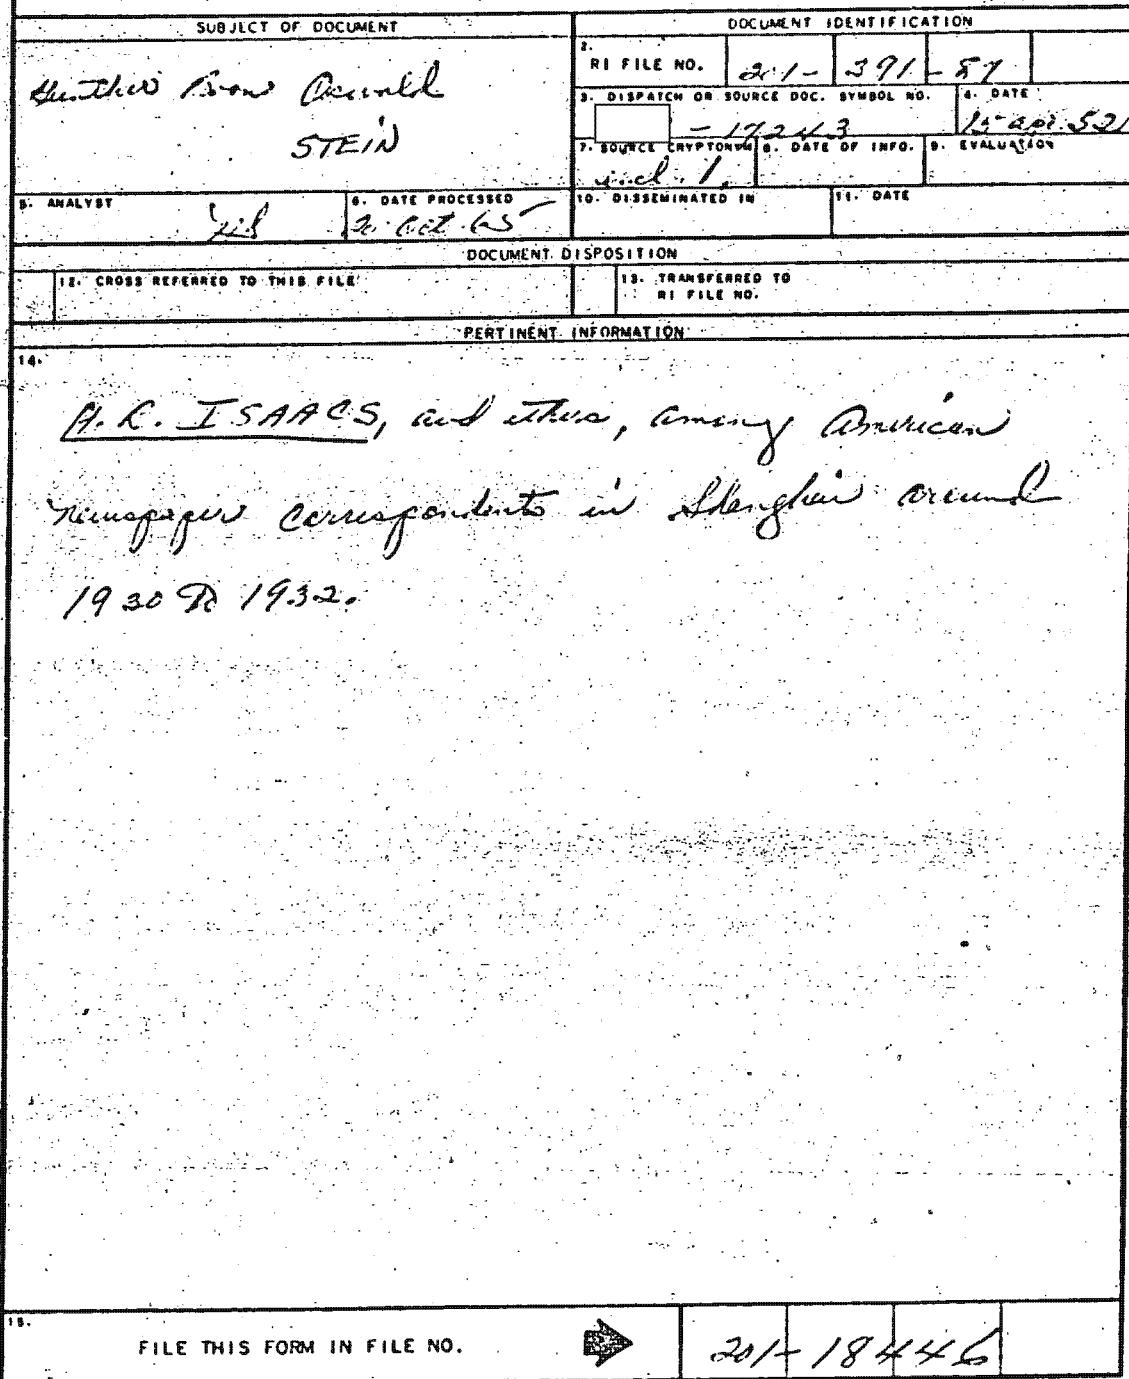 SUBJECT OF DOCUMENT
DOCUMENT IDENTIFICATION
2.
RI FILE NO. 201- 391-57
STEIN
3. DISPATCH OR SOURCE DOC. SYMBOL NO.
-17243
4. DATE
15 apr. 52
7. SOURCE CRYPTONYM
incl. 1.
8. DATE OF INFO.
9. EVALUATION
5. ANALYST
6. DATE PROCESSED
20 Oct 65
10. DISSEMINATED IN
11. DATE
DOCUMENT DISPOSITION
12. CROSS REFERRED TO THIS FILE
13. TRANSFERRED TO
RI FILE NO.
PERTINENT INFORMATION
14.
H.R. ISAACS, and others, among American
newspaper correspondents in Shanghai around
1930 to 1932.
15.
FILE THIS FORM IN FILE NO.
201-18446